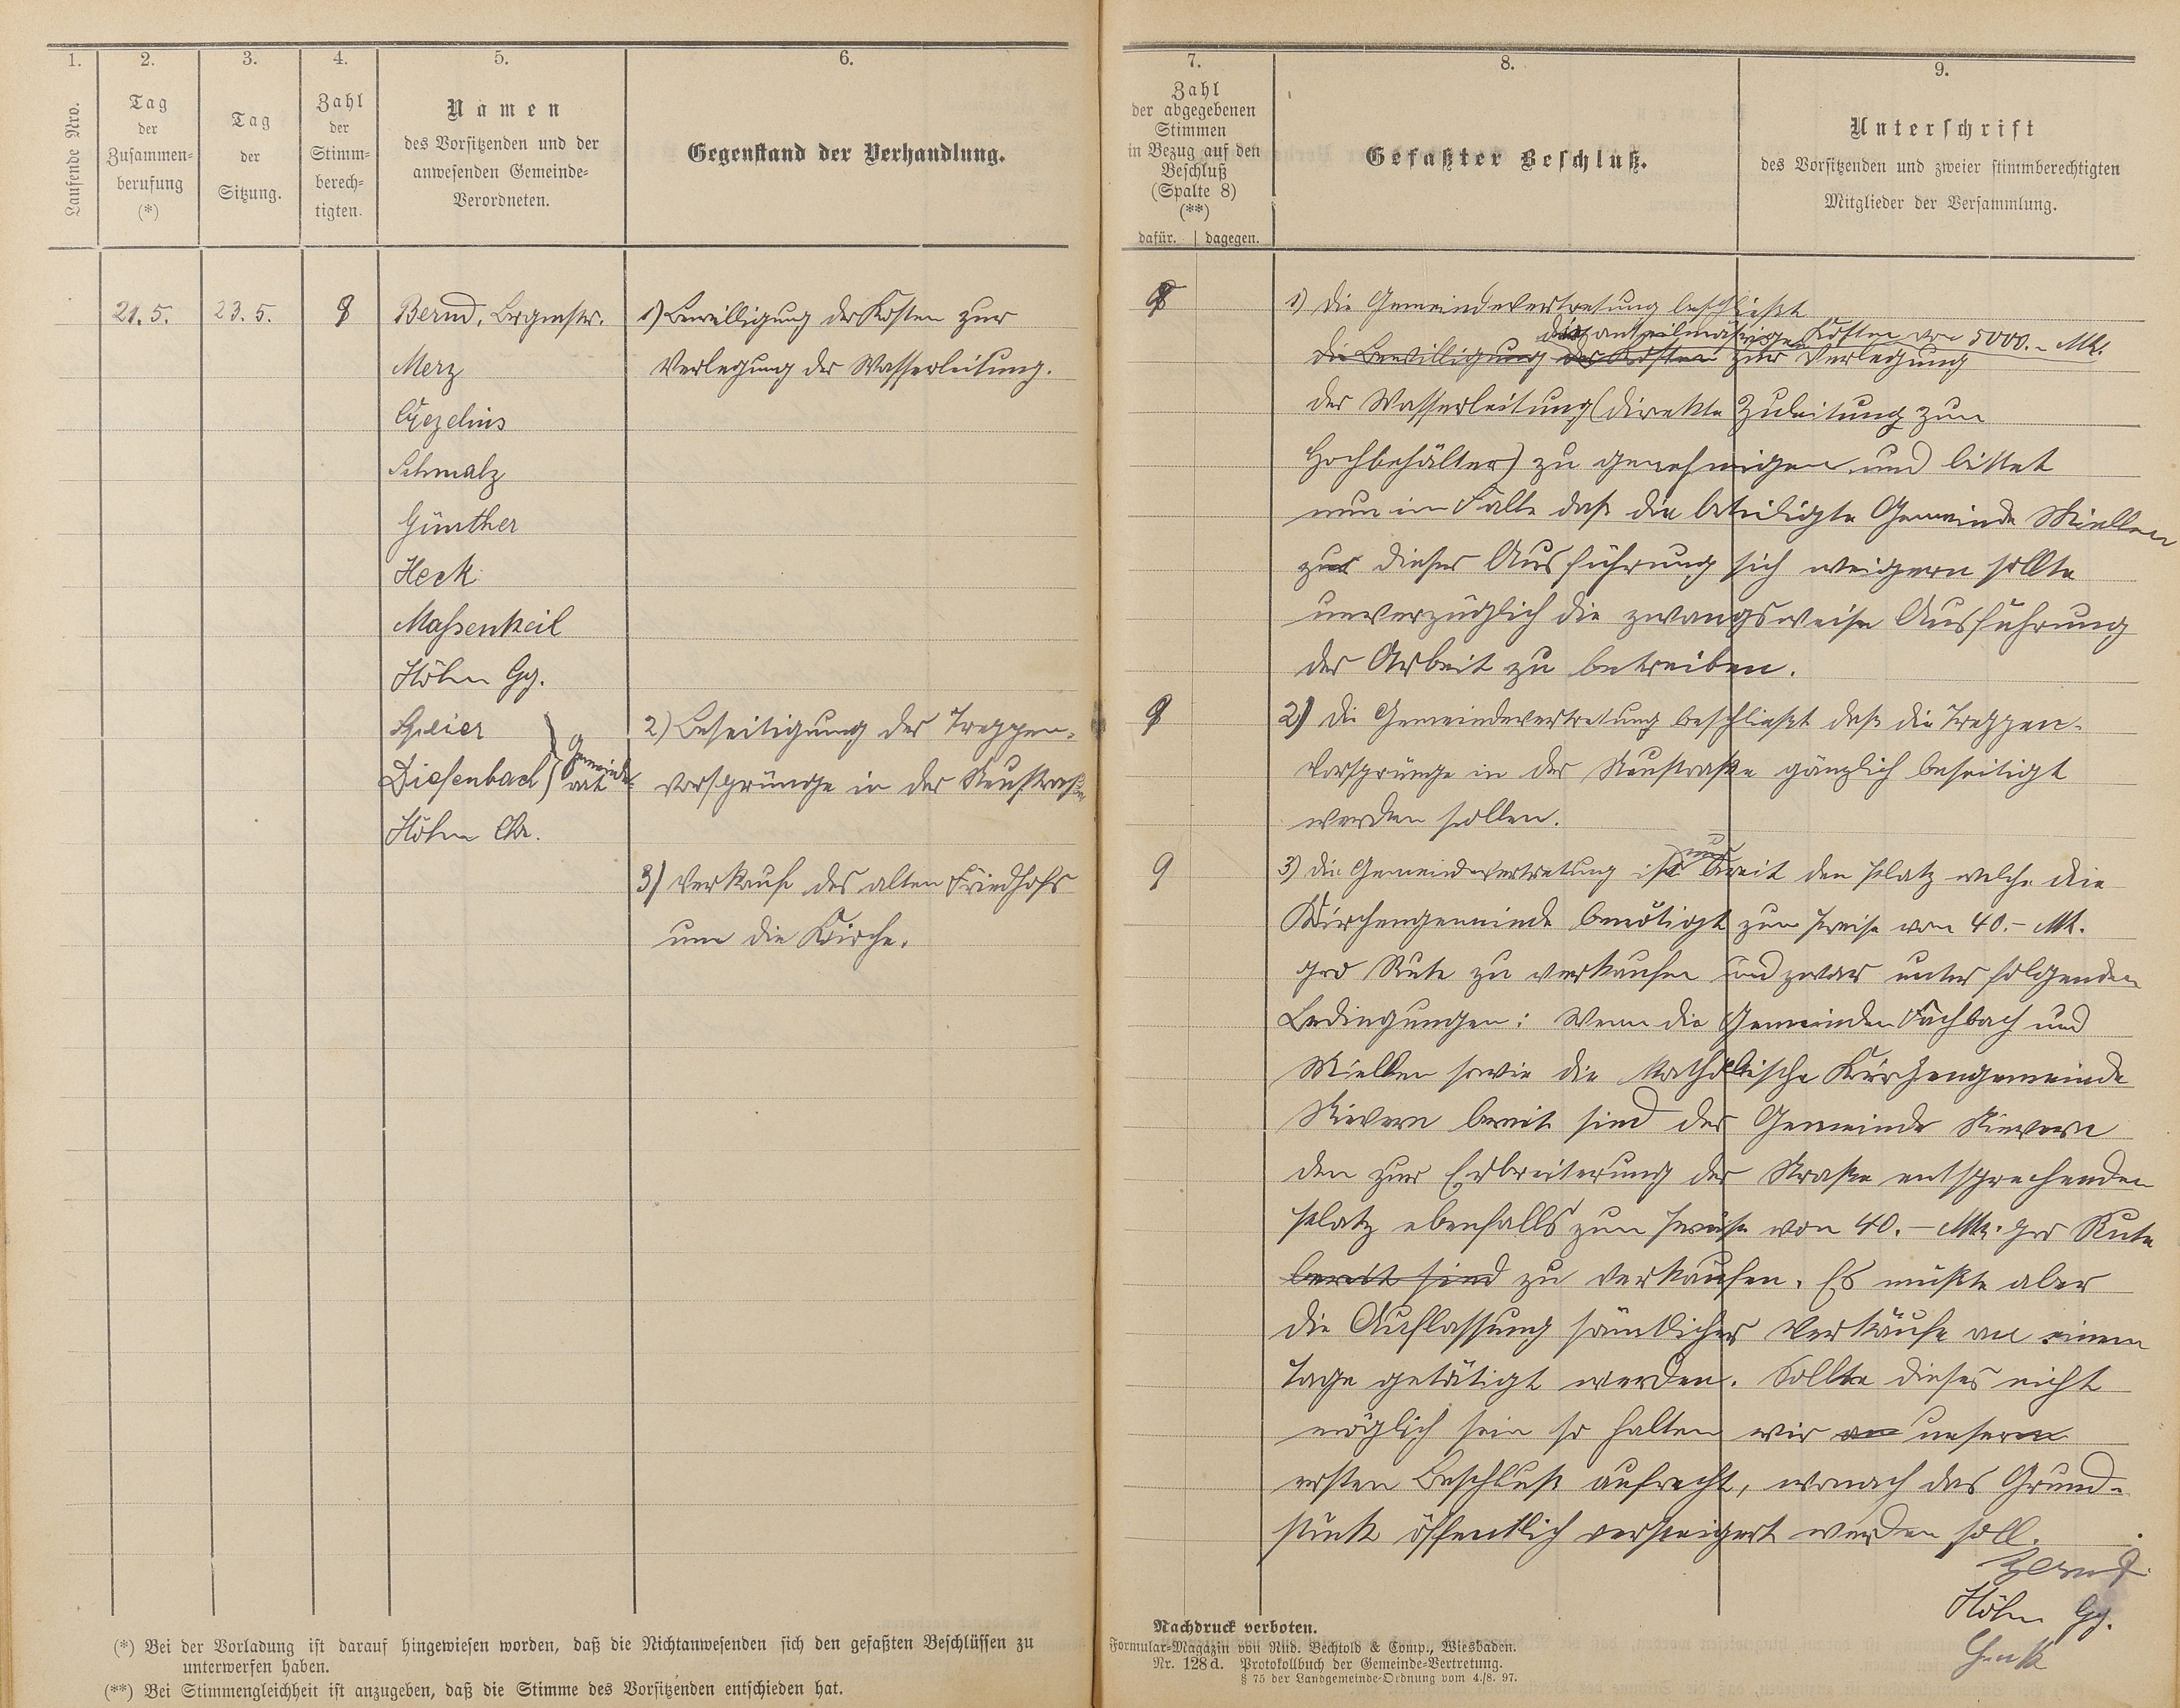 1.
Laufende Nro.
2.
Tag
der
Zusammen-
berufung
(*)
3.
Tag
der
Sitzung.
4.
Zahl
der
Stimm-
berech-
tigten.
5.
Namen
des Vorsitzenden und der
anwesenden Gemeinde-
Verordneten.
6.
Gegenstand der Verhandlung.
21. 5.
23. 5.
9
Bernd, Brgmstr.
Merz
Gezelius
Schmalz
Günther
Heck
Maßenkeil
Höhn Gg.
Speier
Diefenbach } Gemeinde-
rat
Höhn Chr.
1) Bewilligung der Kosten zur
Verlegung der Wasserleitung.
2) Beseitigung der Treppen-
vorsprünge in der Neustraße
3) Verkauf des alten Friedhofs
um die Kirche.
(*) Bei der Vorladung ist darauf hingewiesen worden, daß die Nichtanwesenden sich den gefaßten Beschlüssen zu
unterwerfen haben.
(**) Bei Stimmengleichheit ist anzugeben, daß die Stimme des Vorsitzenden entschieden hat.
7.
Zahl
der abgegebenen
Stimmen
in Bezug auf den
Beschluß
(Spalte 8)
(**)
dafür. | dagegen.
8.
Gefaßter Beschluß.
9.
Unterschrift
des Vorsitzenden und zweier stimmberechtigten
Mitglieder der Versammlung.
9
1) Die Gemeindevertretung beschließt
die anteilmäßigen Kosten von 5000.- Mk.
die Bewilligung der Kosten zur Verlegung
der Wasserleitung (direkte Zuleitung zum
Hochbehälter) zu genehmigen und bittet
nun im Falle daß die beteiligte Gemeinde Miellen
zur dieser Ausführung sich weigern sollte
unverzüglich die zwangsweise Ausführung
der Arbeit zu betreiben.
9
2) Die Gemeindevertretung beschließt daß die Treppen-
vorsprünge in der Neustraße gänzlich beseitigt
werden sollen.
9
3) Die Gemeindevertretung ist nur bereit den Platz welche die
Kirchengemeinde benötigt zum Preise von 40.- Mk.
pro Rute zu verkaufen und zwar unter folgenden
Bedingungen: Wenn die Gemeinden Fachbach und
Miellen sowie die katholische Kirchengemeinde
Nievern bereit sind der Gemeinde Nievern
den zur Erbreiterung der Straße entsprechenden
Platz ebenfalls zum Preise von 40.- Mk. pro Rute
bereit sind zu verkaufen. Es müßte aber
die Auflassung sämtlicher Verkäufe an einem
Tage getätigt werden. Sollte dieses nicht
möglich sein so halten wir an unseren
ersten Beschluß aufrecht, wonach das Grund-
stück öffentlich versteigert werden soll.
Bernd
Höhn Gg.
Nachdruck verboten.
Formular-Magazin von Rud. Bechtold & Comp., Wiesbaden.
Nr. 128d. Protokollbuch der Gemeinde-Vertretung.
§ 75 der Landgemeinde-Ordnung vom 4./8. 97.